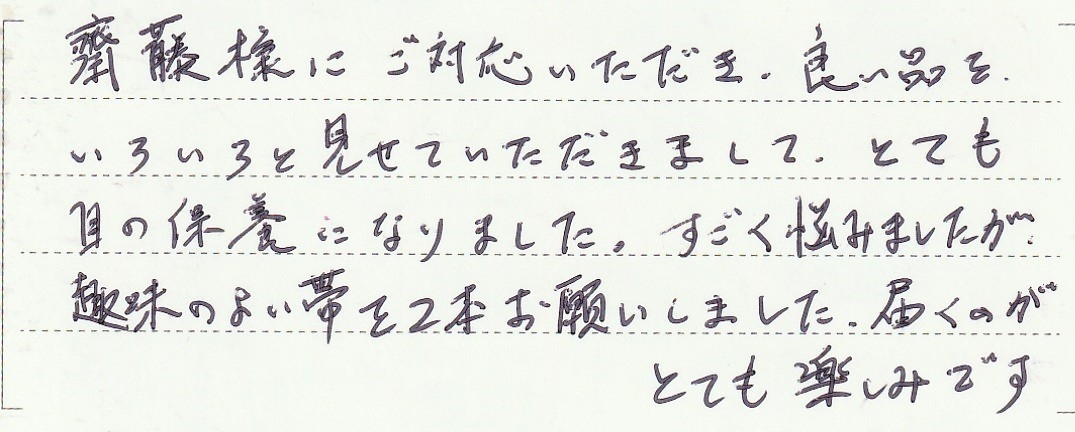 齋藤様にご対応いただき、良い品を、
いろいろと見せていただきまして、とても
目の保養になりました。すごく悩みましたが、
趣味のよい帯を2本お願いしました。届くのが
とても楽しみです